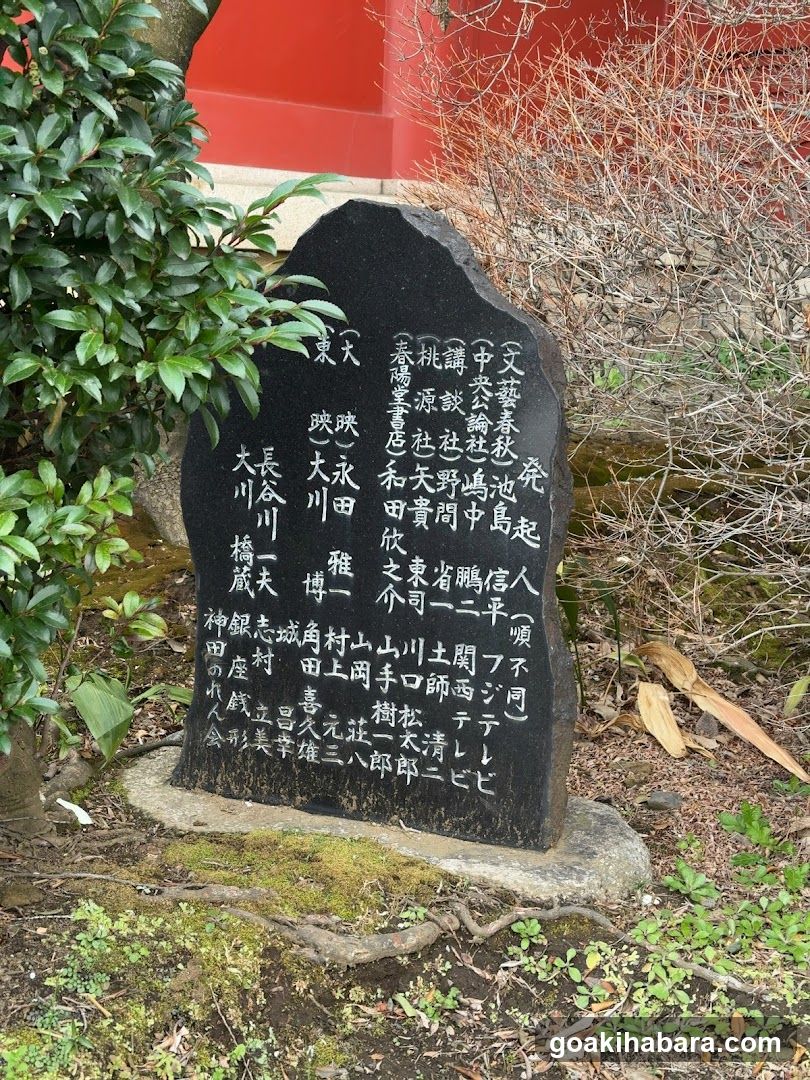 発起人(順不同)
(文藝春秋)池島 信平 フジテレビ
(中央公論社)嶋中 鵬二 関西テレビ
(講談社)野間 省一 土師 清二
(桃源社)矢貴 東司 川口 松太郎
(春陽堂書店)和田欣之介 山手 樹一郎
山岡 荘八
(大映)永田 雅一 村上 元三
(東映)大川 博 角田 喜久雄
城 昌幸
長谷川一夫 志村 立美
大川 橋蔵 銀座銭形
神田のれん会
goakihabara.com